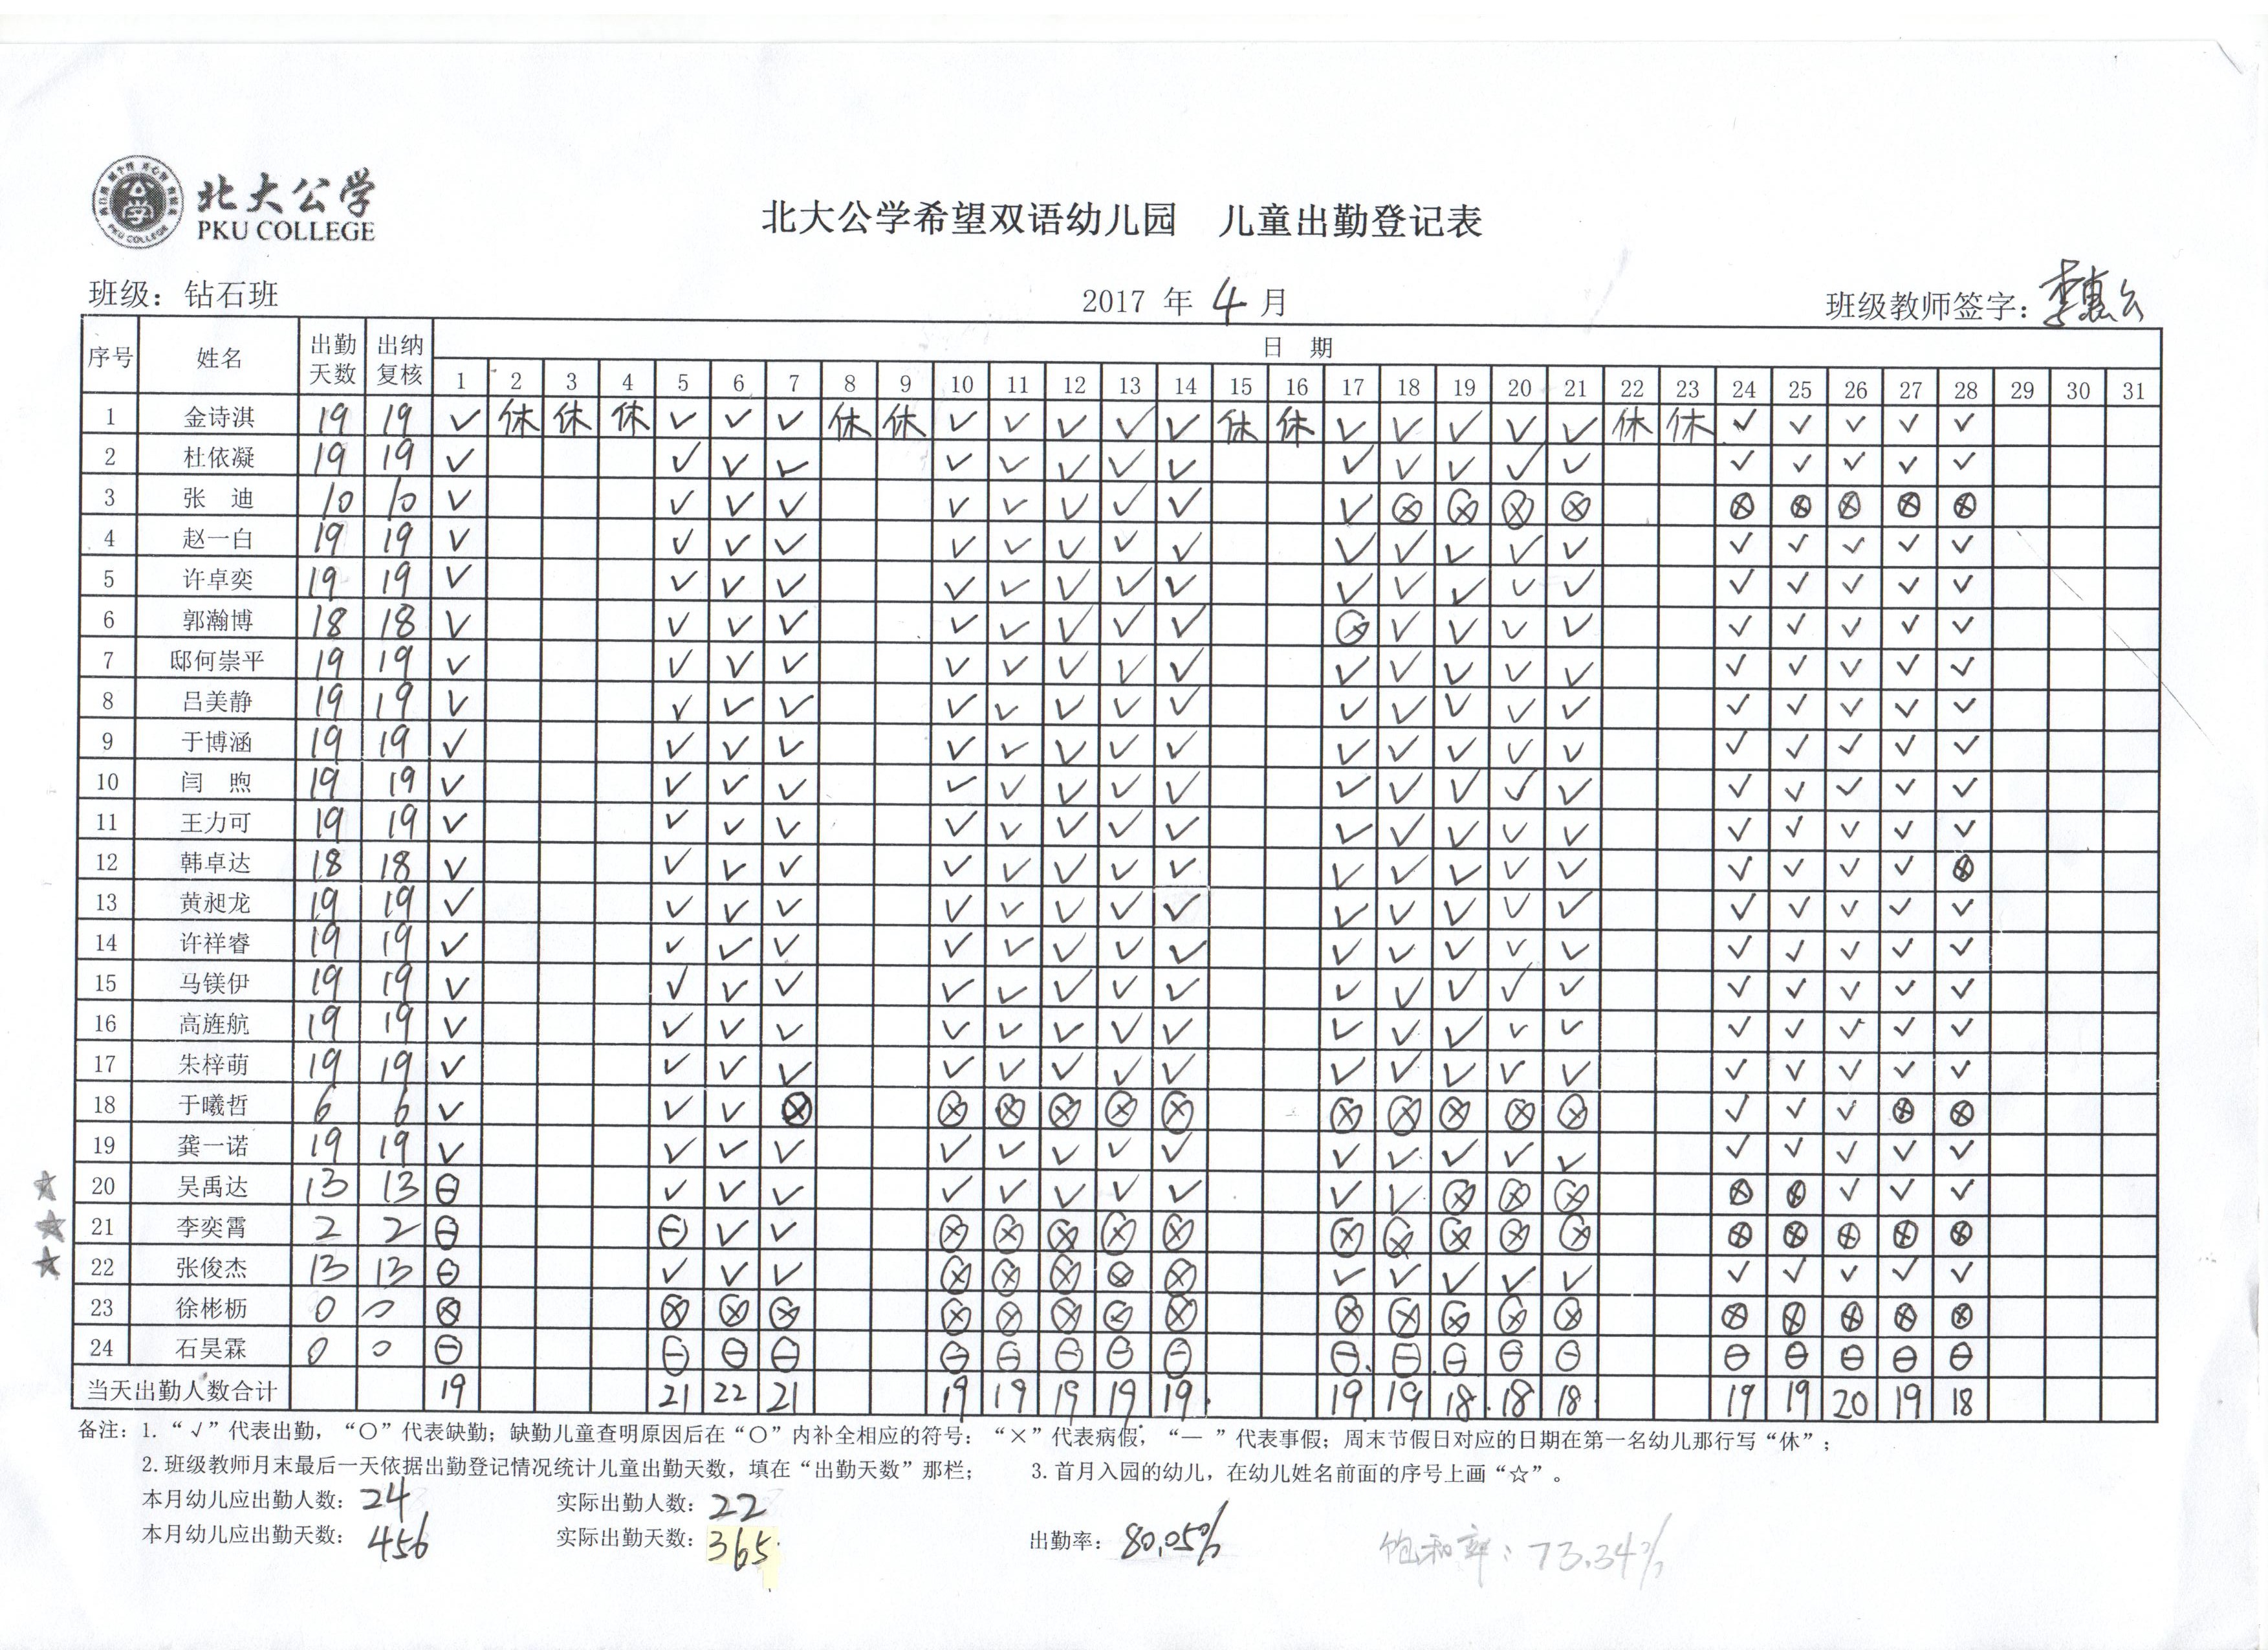 北大公学
PKU COLLEGE
北大公学希望双语幼儿园 儿童出勤登记表
班级：钻石班 2017 年 4 月 班级教师签字：
序号 姓名 出勤天数 出纳复核 日 期
1 2 3 4 5 6 7 8 9 10 11 12 13 14 15 16 17 18 19 20 21 22 23 24 25 26 27 28 29 30 31
1 金诗淇 19 19 ✓ 休 休 休 ✓ ✓ ✓ 休 休 ✓ ✓ ✓ ✓ ✓ 休 休 ✓ ✓ ✓ ✓ ✓ 休 休 ✓ ✓ ✓ ✓ ✓
2 杜依凝 19 19 ✓ ✓ ✓ ✓ ✓ ✓ ✓ ✓ ✓ ✓ ✓ ✓ ✓ ✓ ✓ ✓ ✓ ✓ ✓
3 张 迪 10 10 ✓ ✓ ✓ ✓ ✓ ✓ ✓ ✓ ✓ ✓ ⊗ ⊗ ⊗ ⊗ ⊗ ⊗ ⊗ ⊗ ⊗
4 赵一白 19 19 ✓ ✓ ✓ ✓ ✓ ✓ ✓ ✓ ✓ ✓ ✓ ✓ ✓ ✓ ✓ ✓ ✓ ✓ ✓
5 许卓奕 19 19 ✓ ✓ ✓ ✓ ✓ ✓ ✓ ✓ ✓ ✓ ✓ ✓ ✓ ✓ ✓ ✓ ✓ ✓ ✓
6 郭瀚博 18 18 ✓ ✓ ✓ ✓ ✓ ✓ ✓ ✓ ✓ ⊗ ✓ ✓ ✓ ✓ ✓ ✓ ✓ ✓ ✓
7 邸何崇平 19 19 ✓ ✓ ✓ ✓ ✓ ✓ ✓ ✓ ✓ ✓ ✓ ✓ ✓ ✓ ✓ ✓ ✓ ✓ ✓
8 吕美静 19 19 ✓ ✓ ✓ ✓ ✓ ✓ ✓ ✓ ✓ ✓ ✓ ✓ ✓ ✓ ✓ ✓ ✓ ✓ ✓
9 于博涵 19 19 ✓ ✓ ✓ ✓ ✓ ✓ ✓ ✓ ✓ ✓ ✓ ✓ ✓ ✓ ✓ ✓ ✓ ✓ ✓
10 闫 煦 19 19 ✓ ✓ ✓ ✓ ✓ ✓ ✓ ✓ ✓ ✓ ✓ ✓ ✓ ✓ ✓ ✓ ✓ ✓ ✓
11 王力可 19 19 ✓ ✓ ✓ ✓ ✓ ✓ ✓ ✓ ✓ ✓ ✓ ✓ ✓ ✓ ✓ ✓ ✓ ✓ ✓
12 韩卓达 18 18 ✓ ✓ ✓ ✓ ✓ ✓ ✓ ✓ ✓ ✓ ✓ ✓ ✓ ✓ ✓ ✓ ✓ ✓ ⊗
13 黄昶龙 19 19 ✓ ✓ ✓ ✓ ✓ ✓ ✓ ✓ ✓ ✓ ✓ ✓ ✓ ✓ ✓ ✓ ✓ ✓ ✓
14 许祥睿 19 19 ✓ ✓ ✓ ✓ ✓ ✓ ✓ ✓ ✓ ✓ ✓ ✓ ✓ ✓ ✓ ✓ ✓ ✓ ✓
15 马镁伊 19 19 ✓ ✓ ✓ ✓ ✓ ✓ ✓ ✓ ✓ ✓ ✓ ✓ ✓ ✓ ✓ ✓ ✓ ✓ ✓
16 高旌航 19 19 ✓ ✓ ✓ ✓ ✓ ✓ ✓ ✓ ✓ ✓ ✓ ✓ ✓ ✓ ✓ ✓ ✓ ✓ ✓
17 朱梓萌 19 19 ✓ ✓ ✓ ✓ ✓ ✓ ✓ ✓ ✓ ✓ ✓ ✓ ✓ ✓ ✓ ✓ ✓ ✓ ✓
18 于曦哲 6 6 ✓ ✓ ✓ ⊗ ⊗ ⊗ ⊗ ⊗ ⊗ ⊗ ⊗ ⊗ ⊗ ⊗ ✓ ✓ ✓ ⊗ ⊗
19 龚一诺 19 19 ✓ ✓ ✓ ✓ ✓ ✓ ✓ ✓ ✓ ✓ ✓ ✓ ✓ ✓ ✓ ✓ ✓ ✓ ✓
☆ 20 吴禹达 13 13 ⊖ ✓ ✓ ✓ ✓ ✓ ✓ ✓ ✓ ✓ ✓ ⊗ ⊗ ⊗ ⊗ ⊗ ✓ ✓ ✓
☆ 21 李奕霄 2 2 ⊖ ⊖ ✓ ✓ ⊗ ⊗ ⊗ ⊗ ⊗ ⊗ ⊗ ⊗ ⊗ ⊗ ⊗ ⊗ ⊗ ⊗ ⊗
☆ 22 张俊杰 13 13 ⊖ ✓ ✓ ✓ ⊗ ⊗ ⊗ ⊗ ⊗ ✓ ✓ ✓ ✓ ✓ ✓ ✓ ✓ ✓ ✓
23 徐彬枥 0 0 ⊗ ⊗ ⊗ ⊗ ⊗ ⊗ ⊗ ⊗ ⊗ ⊗ ⊗ ⊗ ⊗ ⊗ ⊗ ⊗ ⊗ ⊗ ⊗
24 石昊霖 0 0 ⊖ ⊖ ⊖ ⊖ ⊖ ⊖ ⊖ ⊖ ⊖ ⊖ ⊖ ⊖ ⊖ ⊖ ⊖ ⊖ ⊖ ⊖ ⊖
当天出勤人数合计 19 21 22 21 19 19 19 19 19 19 19 18 18 18 19 19 20 19 18
备注：1. “√”代表出勤，“○”代表缺勤；缺勤儿童查明原因后在“○”内补全相应的符号：“×”代表病假，“— ”代表事假；周末节假日对应的日期在第一名幼儿那行写“休”；
2.班级教师月末最后一天依据出勤登记情况统计儿童出勤天数，填在“出勤天数”那栏； 3.首月入园的幼儿，在幼儿姓名前面的序号上画“☆”。
本月幼儿应出勤人数：24 实际出勤人数：22
本月幼儿应出勤天数：456 实际出勤天数：365 出勤率：80.05% 饱和率：73.34%